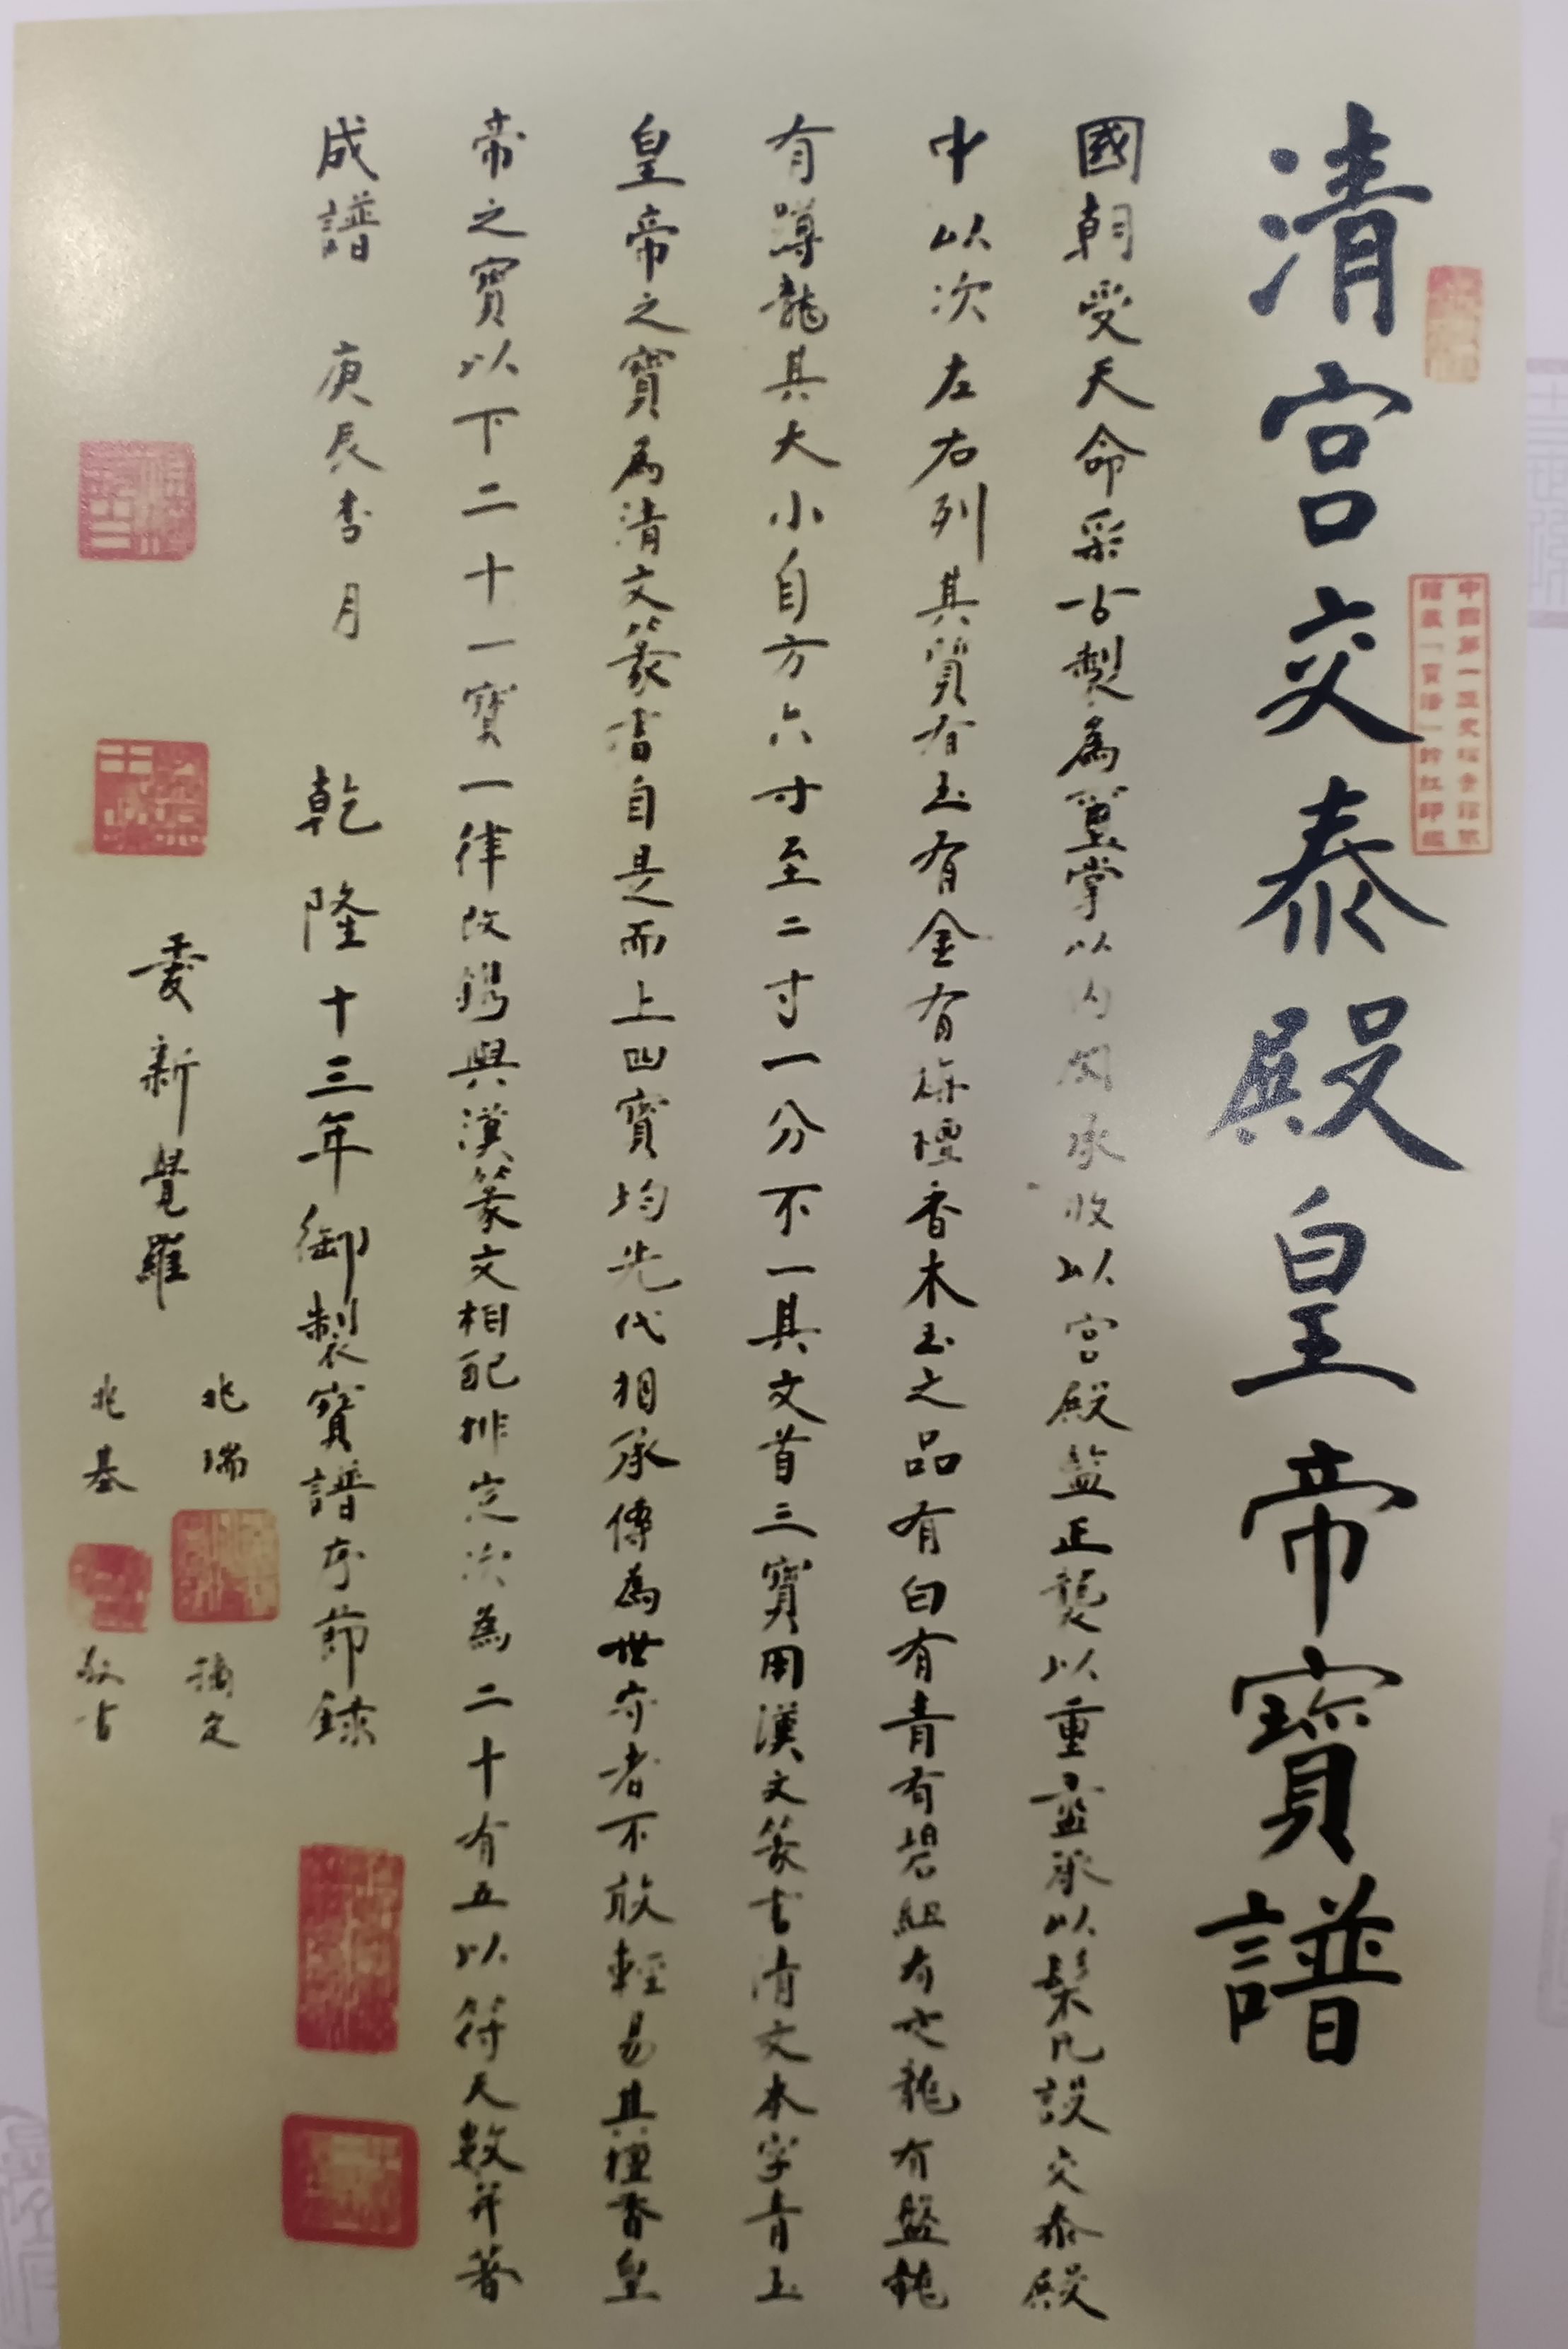 清宮交泰殿皇帝寶譜
國朝受天命采古製為璽掌以內閣承收以宮殿監正襲以重盝承以髹几設交泰殿
中以次左右列其質有玉有金有栴檀香木玉之品有白有青有碧紐有交龍有盤龍
有蹲龍其大小自方六寸至二寸一分不一其文首三寶用漢文篆書清文本字青玉
皇帝之寶為清文篆書自是而上四寶均先代相承傳為世守者不敢輕易其檀香皇
帝之寶以下二十一寶一律改鐫與漢篆文相配排定次為二十有五以符天數并著
成譜 庚辰季月 乾隆十三年御製寶譜序節錄
愛新覺羅
兆瑞
兆基 敬書
中國第一歷史檔案館
館藏「寶譜」鈐紅印鑑